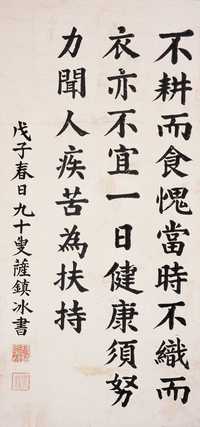 不耕而食愧當時不織而
衣亦不宜一日健康須努
力聞人疾苦為扶持
戊子春日九十叟薩鎮冰書